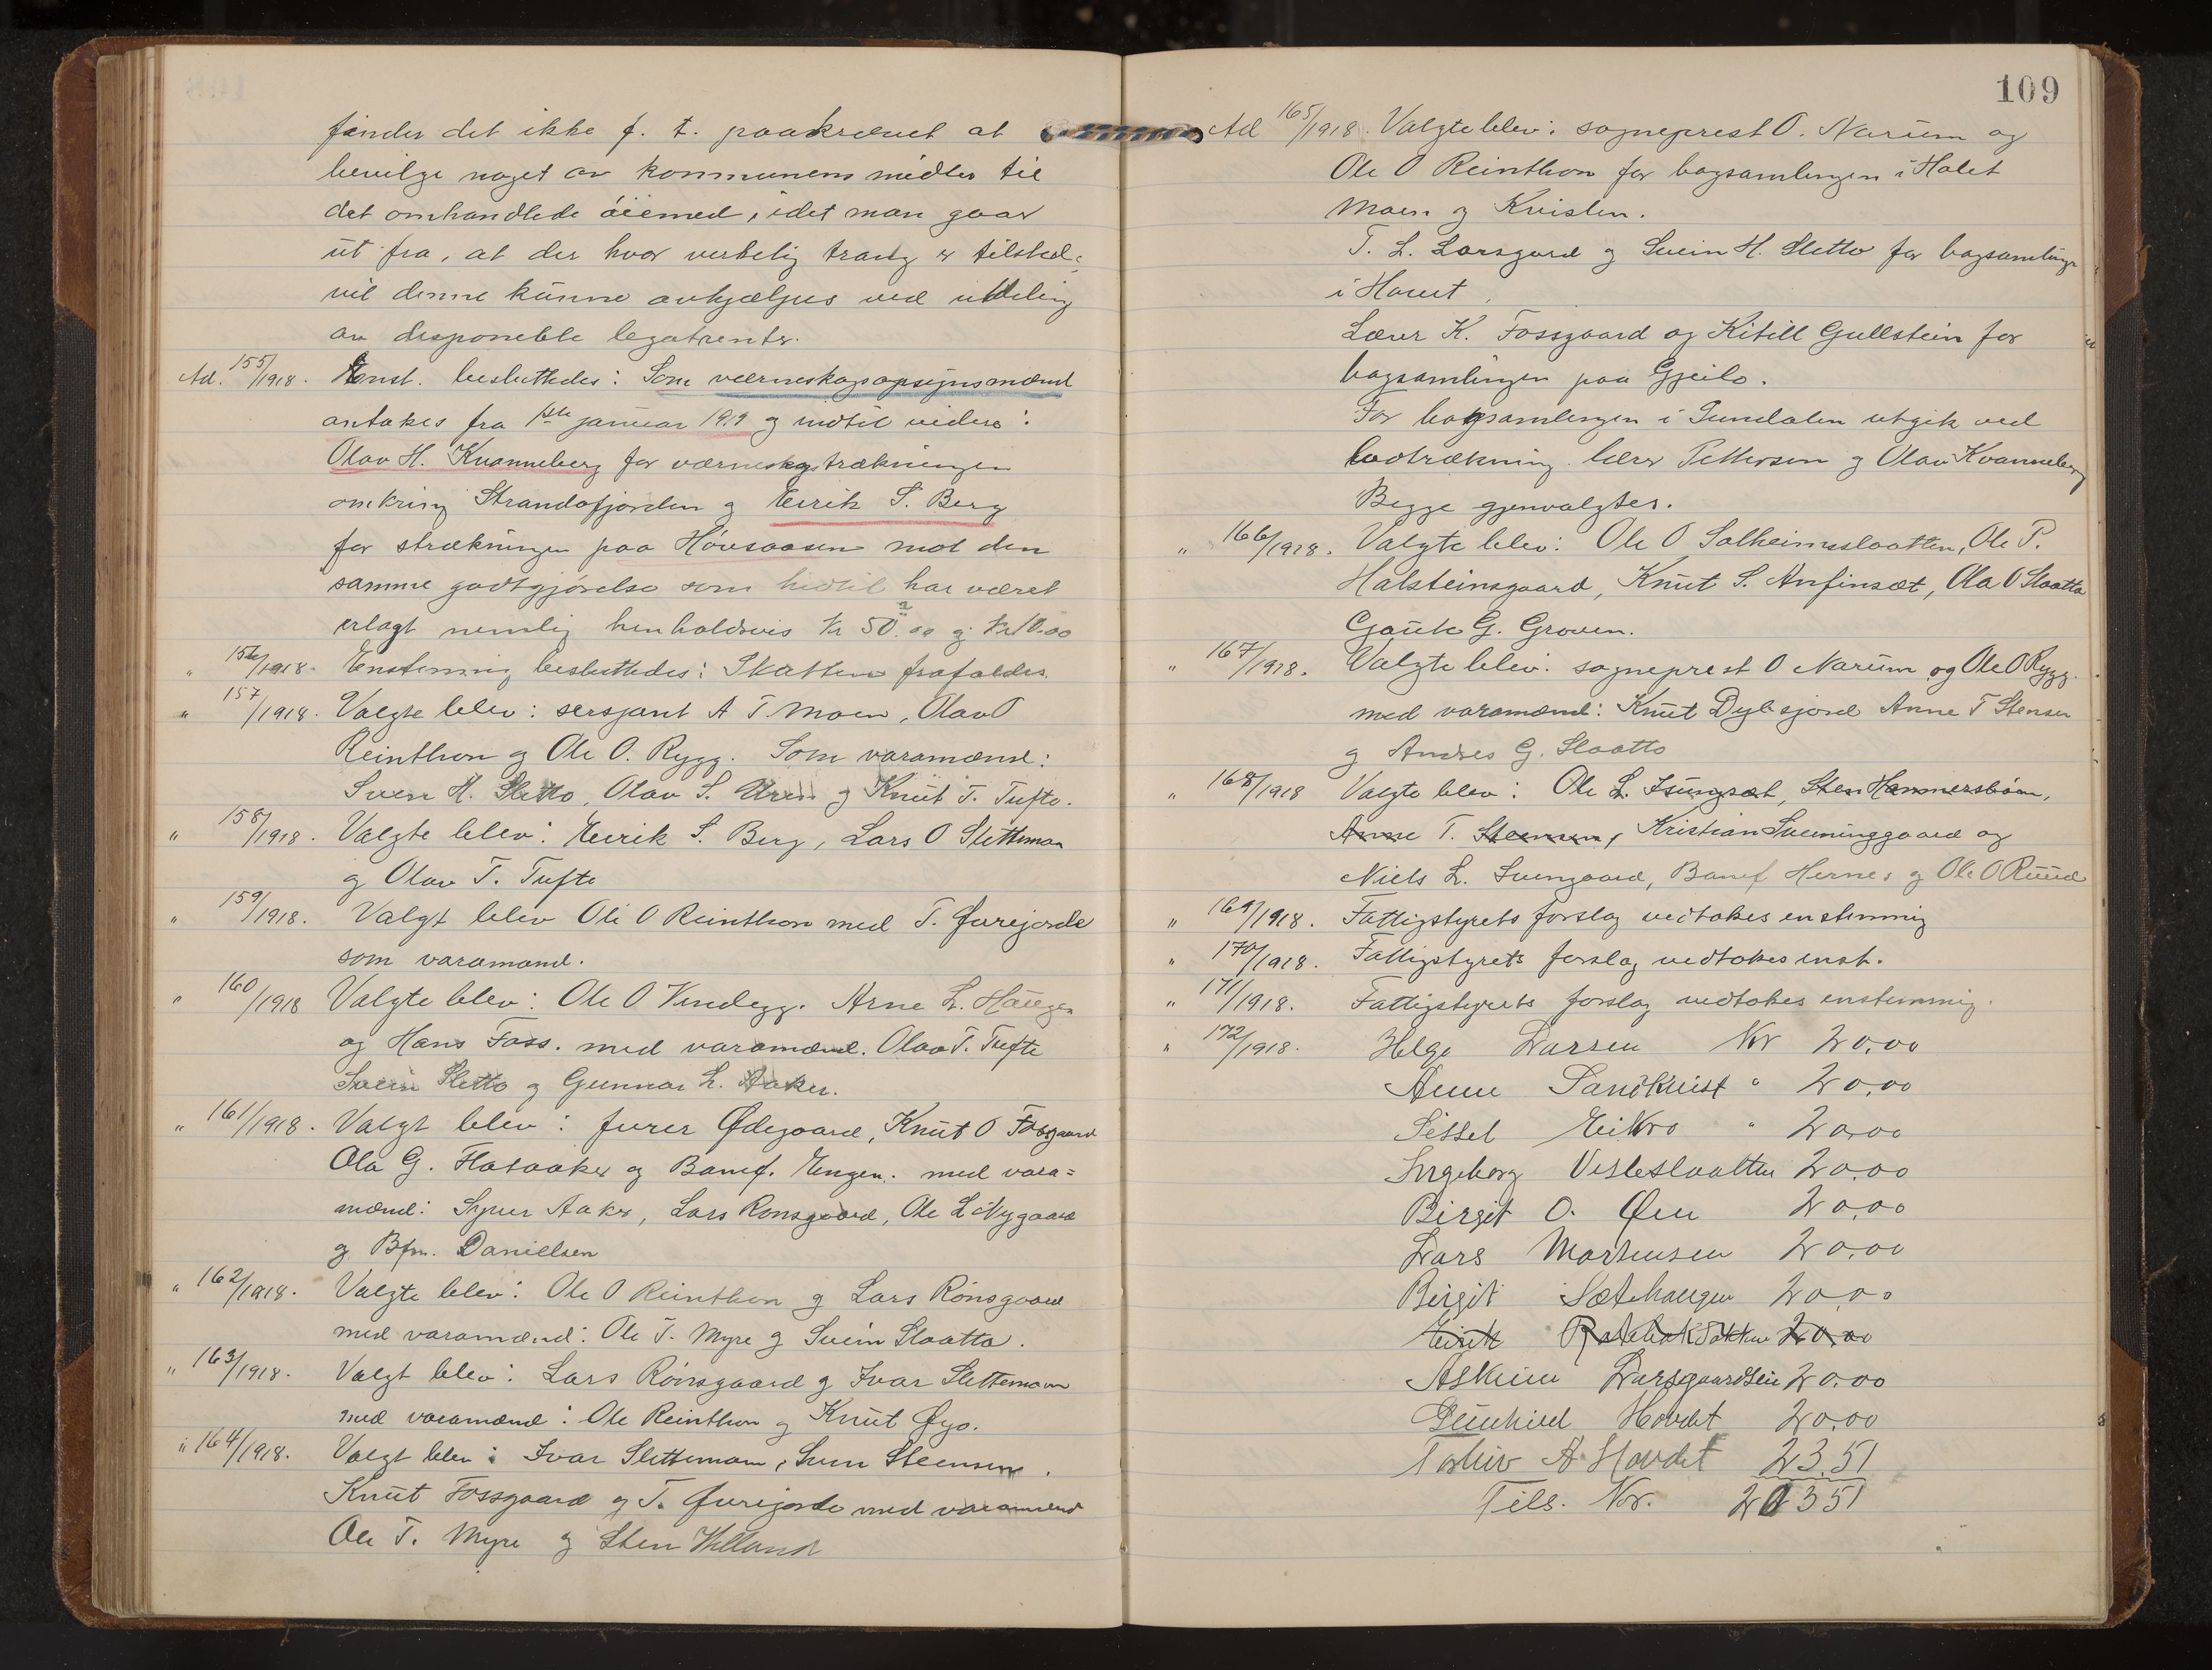 finder det ikke f. t. paakrævet at
bevilge noget av kommunens midler til
det omhandlede øiemed, idet man gaar
ut fra, at der hvor virkelig trang er tilstede
vil denne kunne avhjælpes ved utdeling
av disponible legatrenter.
Ad. 155/1918. Enst. besluttedes: Som værneskogopsynsmænd
antakes fra 1ste januar 1919 og indtil videre:
Olav H. Kvanneberg for værneskogstrækningen
omkring Strandafjorden og Eirik S. Berg
for strækningen paa Høvsaasen mot den
samme godtgjørelse som hidtil har været
erlagt nemlig henholdsvis kr 50.00 og kr 10.00
" 156/1918. Enstemmig besluttedes: Skatten frafaldes.
" 157/1918. Valgte blev: sersjant A T Moen, Olav O
Reinthon og Ole O. Rygg. Som varamænd:
Svein H. Sletto, Olav S. og Knut T. Tufte.
" 158/1918. Valgte blev: Eirik S. Berg, Lars O Slettmoen
og Olav T. Tufte
" 159/1918. Valgt blev Ole O Reinthon med T. Furejorde
som varamand.
" 160/1918 Valgte blev: Ole O Vindegg. Arne L. Haugen
og Hans Foss. med varamænd. Olav T. Tufte
Svein Sletto og Gunnar L. Aaker.
" 161/1918. Valgt blev: furer Ødegaard, Knut O Fossgaard
Ola G. Flataaker og Banef. Engen. med vara=
mænd: Syver Aaker, Lars Rønsgaard, Ole L Nygaard
og Bfm. Daniellsen
" 162/1918. Valgte blev: Ole O Reinthon og Lars Rønsgaard
med varamænd: Ole T. Myre og Svein Slaatta.
" 163/1918. Valgt blev: Lars Rønsgaard og Ivar Slettemoen
med varamænd: Ole Reinthon og Knut Øyo.
" 164/1918. Valgt blev: Ivar Slettemoen, Steensen.
Knut Fossgaard og T. Furejorde med varamænd
Ole T. Myre og Sten Villand
109
Ad 165/1918. Valgte blev: sogneprest O. Narum og
Ole O Reinthon for bogsamlingen i Holet
Moen og Kvislen.
T. L. Larsgard og Svein H. Sletto for bogsamlingen
i Hovet.
Lærer K. Fossgaard og Kitill Gullstein for
bogsamlingen paa Gjeilo.
For bogsamlingen i Sundalen utgik ved
lodtrækning lærer Pettersen og Olav Kvanneberg
Begge gjenvalgtes.
" 166/1918. Valgte blev: Ole O Solheimsslaatten, Ole P.
Halsteinsgaard, Knut S. Anfinsæt, Ola O Slaatta
Gaute G. Groven.
" 167/1918. Valgte blev: sogneprest O Narum og Ole O Rygg.
med varamænd: Knut Dybsjord Anne T Stensen
og Andres G. Slaatto
" 168/1918 Valgte blev: Ole L. Isungset, Sten Hammersbøen,
Anne T. Steensen, Kristian Sveininggaard og
Niels L. Svengaard, Banef Hernes og Ole O Ruud
" 169/1918. Fattigstyrets forslag vedtakes enstemmig
" 170/1918. Fattigstyrets forslag vedtokes enst.
" 171/1918. Fattigstyrets forslag vedtokes enstemmig.
" 172/1918. Helge Larsen Kr 20,00
Anne Sandkvist " 20,00
Sissel Eikro " 20,00
Ingeborg Vesleslaatten 20,00
Birgit O. Øen 20,00
Lars Mortensen 20,00
Birgit Sætehaugen 20,00
Eirik 20,00
Askim Larsgaardslii 20.00
Gunhild Hovdet 20,00
A Hovdet 23.51
Tils. Kr. 20351